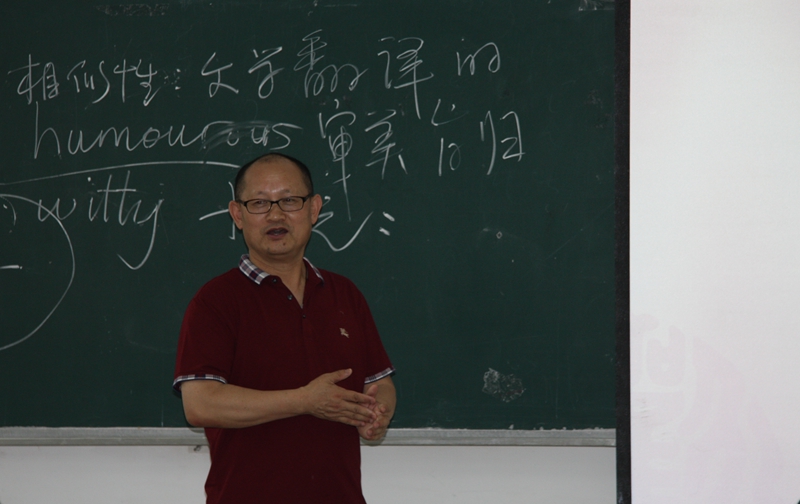 相似性:文学翻译的
humourous 审美旨归
witty